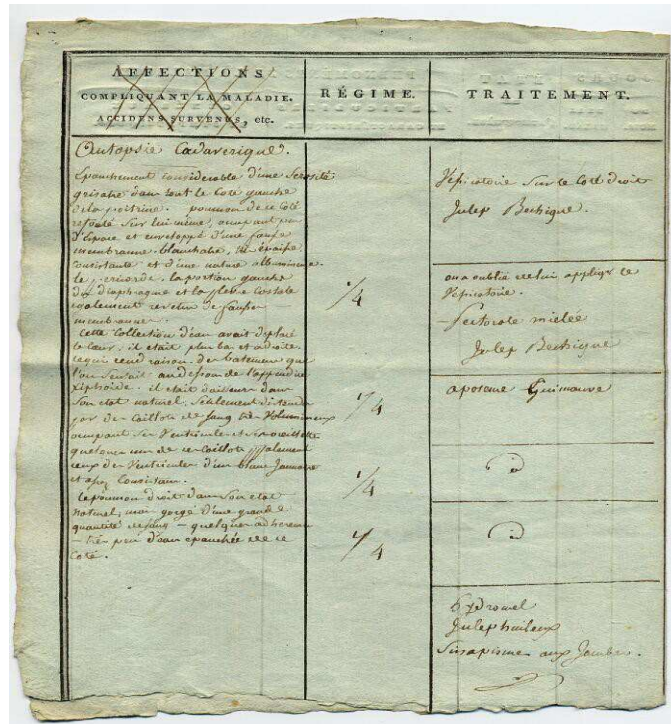 AFFECTIONS
COMPLIQUANT LA MALADIE.
ACCIDENS SURVENUS, etc.
RÉGIME.
TRAITEMENT.
Autopsie Cadaverique.
Epanchement considerable d'une Serosité
grisatre dans tout le Coté gauche
de la poitrine. poumon de ce Coté
refoulé Sur lui même, occupant peu
d'Espace et enveloppé d'une fausse
membranne blanchatre, épaisse
Consistante et d'une nature albumineuse
le pericarde, la portion gauche
du diaphragme et la plevre Costale
egalement revetue de fausses
membrannes.
Cette Collection d'eau avait deplacé
le Cœur, il etait plus bas et a droite
ce qui rend raison des batemens que
l'on Sentait au dessous de l'appendice
Xiphoide. il etait d'ailleurs dans
Son etat naturel, Seulement distendu
par des Caillots de Sang très Volumineux
occupant Ses Ventricules et Ses oreillettes
quelques uns de ces Caillots
ceux des Ventricules d'un blanc Jaunatre
et assez Consistans.
Le poumon droit dans Son etat
naturel, mais gorgé d'une grande
quantité de Sang — quelques adherences
— très peu d'eau epanchée de ce
Coté.
1/4
1/4
1/4
1/4
Vesicatoire Sur le Coté droit
Julep Bechique.
on a oublié de lui appliqr le
Vesicatoire.
Pectorale miellée
Julep Bechique
apozeme Guimauve
Hydromel
Julep huileux
Sinapismes aux Jambes.